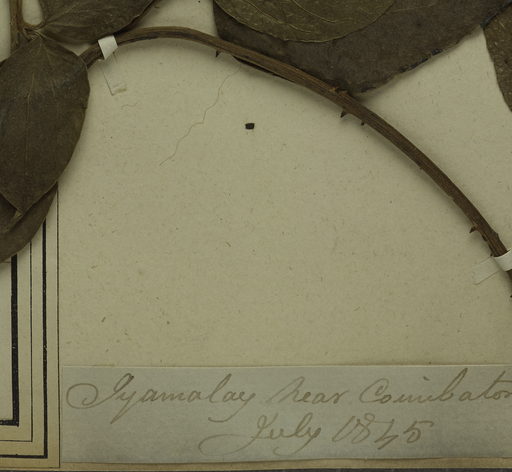 Iyamalay near Coimbator
July 1845